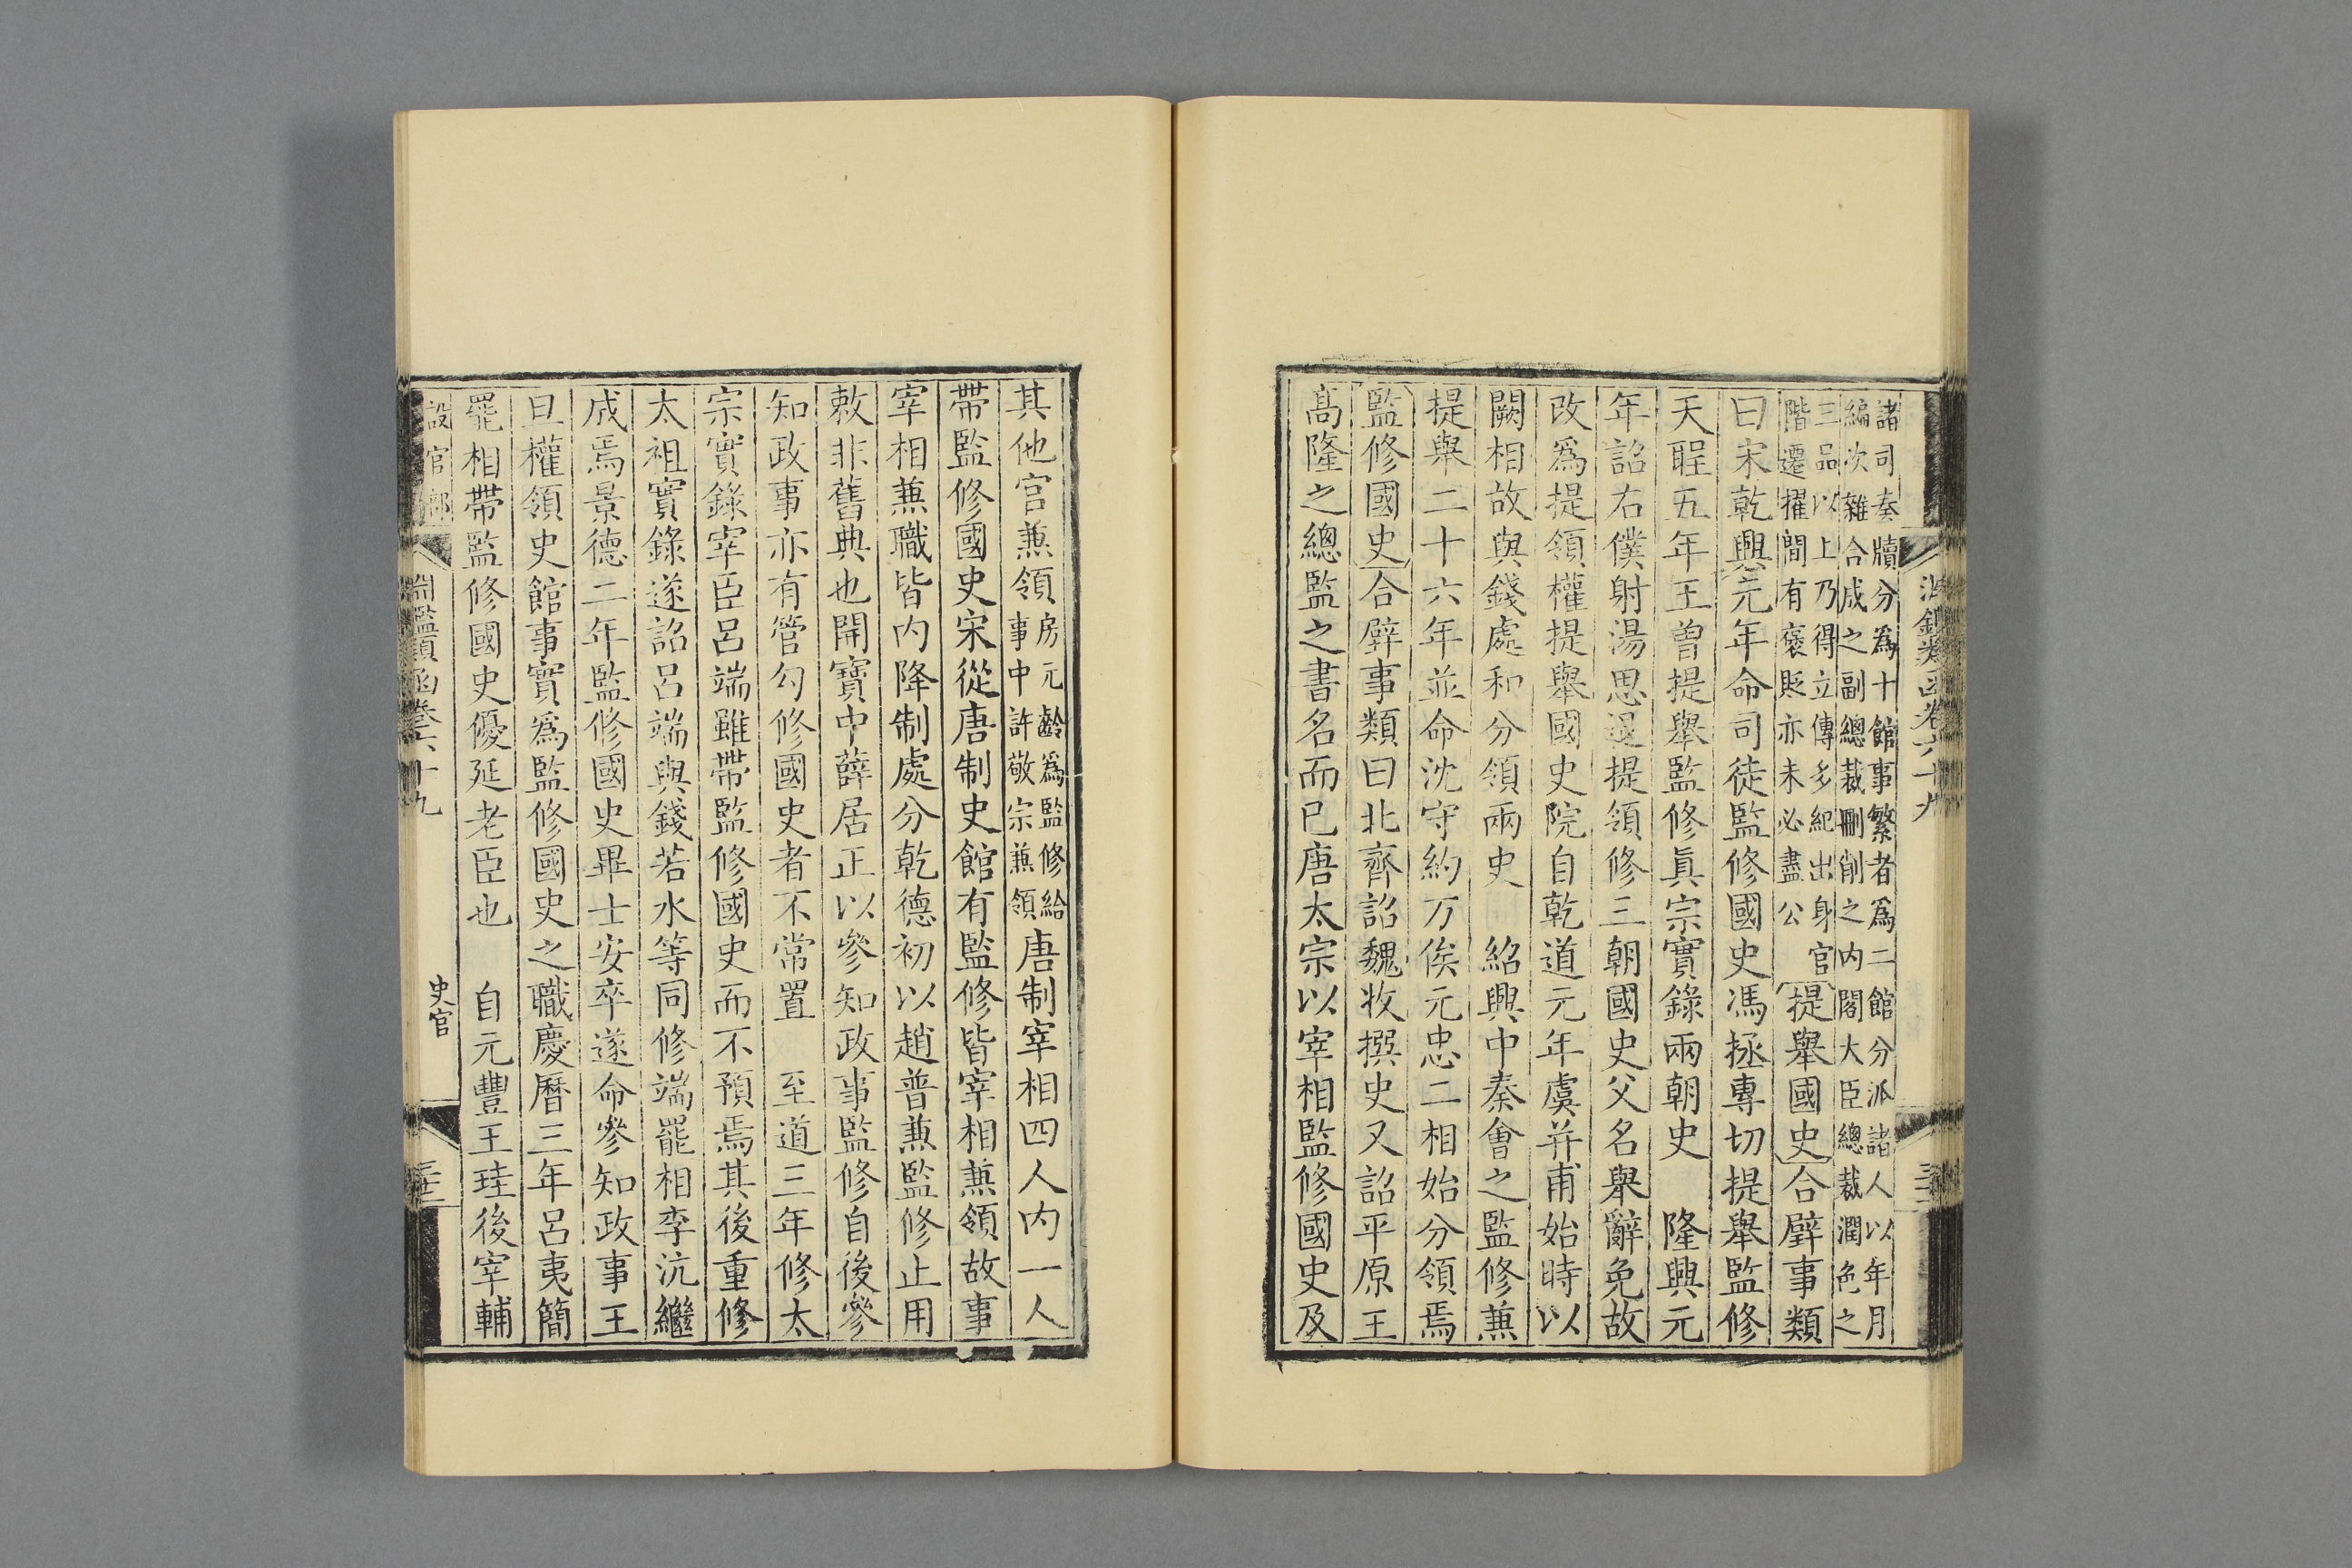 諸司奏牘分爲十館事繁者爲二館分派諸人以年月
編次雜合成之副總裁刪削之內閣大臣總裁潤色之
三品以上乃得立傳多紀出身官
階遷擢間有褒貶亦未必盡公
提舉國史合璧事類
曰宋乾興元年命司徒監修國史馮拯專切提舉監修
天聖五年王曾提舉監修眞宗實錄兩朝史　隆興元
年詔右僕射湯思退提領修三朝國史父名舉辭免故
改爲提領權提舉國史院自乾道元年虞并甫始時以
闕相故與錢處和分領兩史　紹興中秦會之監修兼
提舉二十六年並命沈守約万俟元忠二相始分領焉
監修國史合璧事類曰北齊詔魏收撰史又詔平原王
高隆之總監之書名而已唐太宗以宰相監修國史及
其他官兼領
房元齡爲監修給
事中許敬宗兼領
唐制宰相四人內一人
帶監修國史宋從唐制史館有監修皆宰相兼領故事
宰相兼職皆內降制處分乾德初以趙普兼監修止用
敕非舊典也開寶中薛居正以參知政事監修自後參
知政事亦有管勾修國史者不常置　至道三年修太
宗實錄宰臣呂端雖帶監修國史而不預焉其後重修
太祖實錄遂詔呂端與錢若水等同修端罷相李沆繼
成焉景德二年監修國史畢士安卒遂命參知政事王
旦權領史館事實爲監修國史之職慶曆三年呂夷簡
罷相帶監修國史優延老臣也　自元豐王珪後宰輔
設官部
淵鑑類函卷六十九
史官